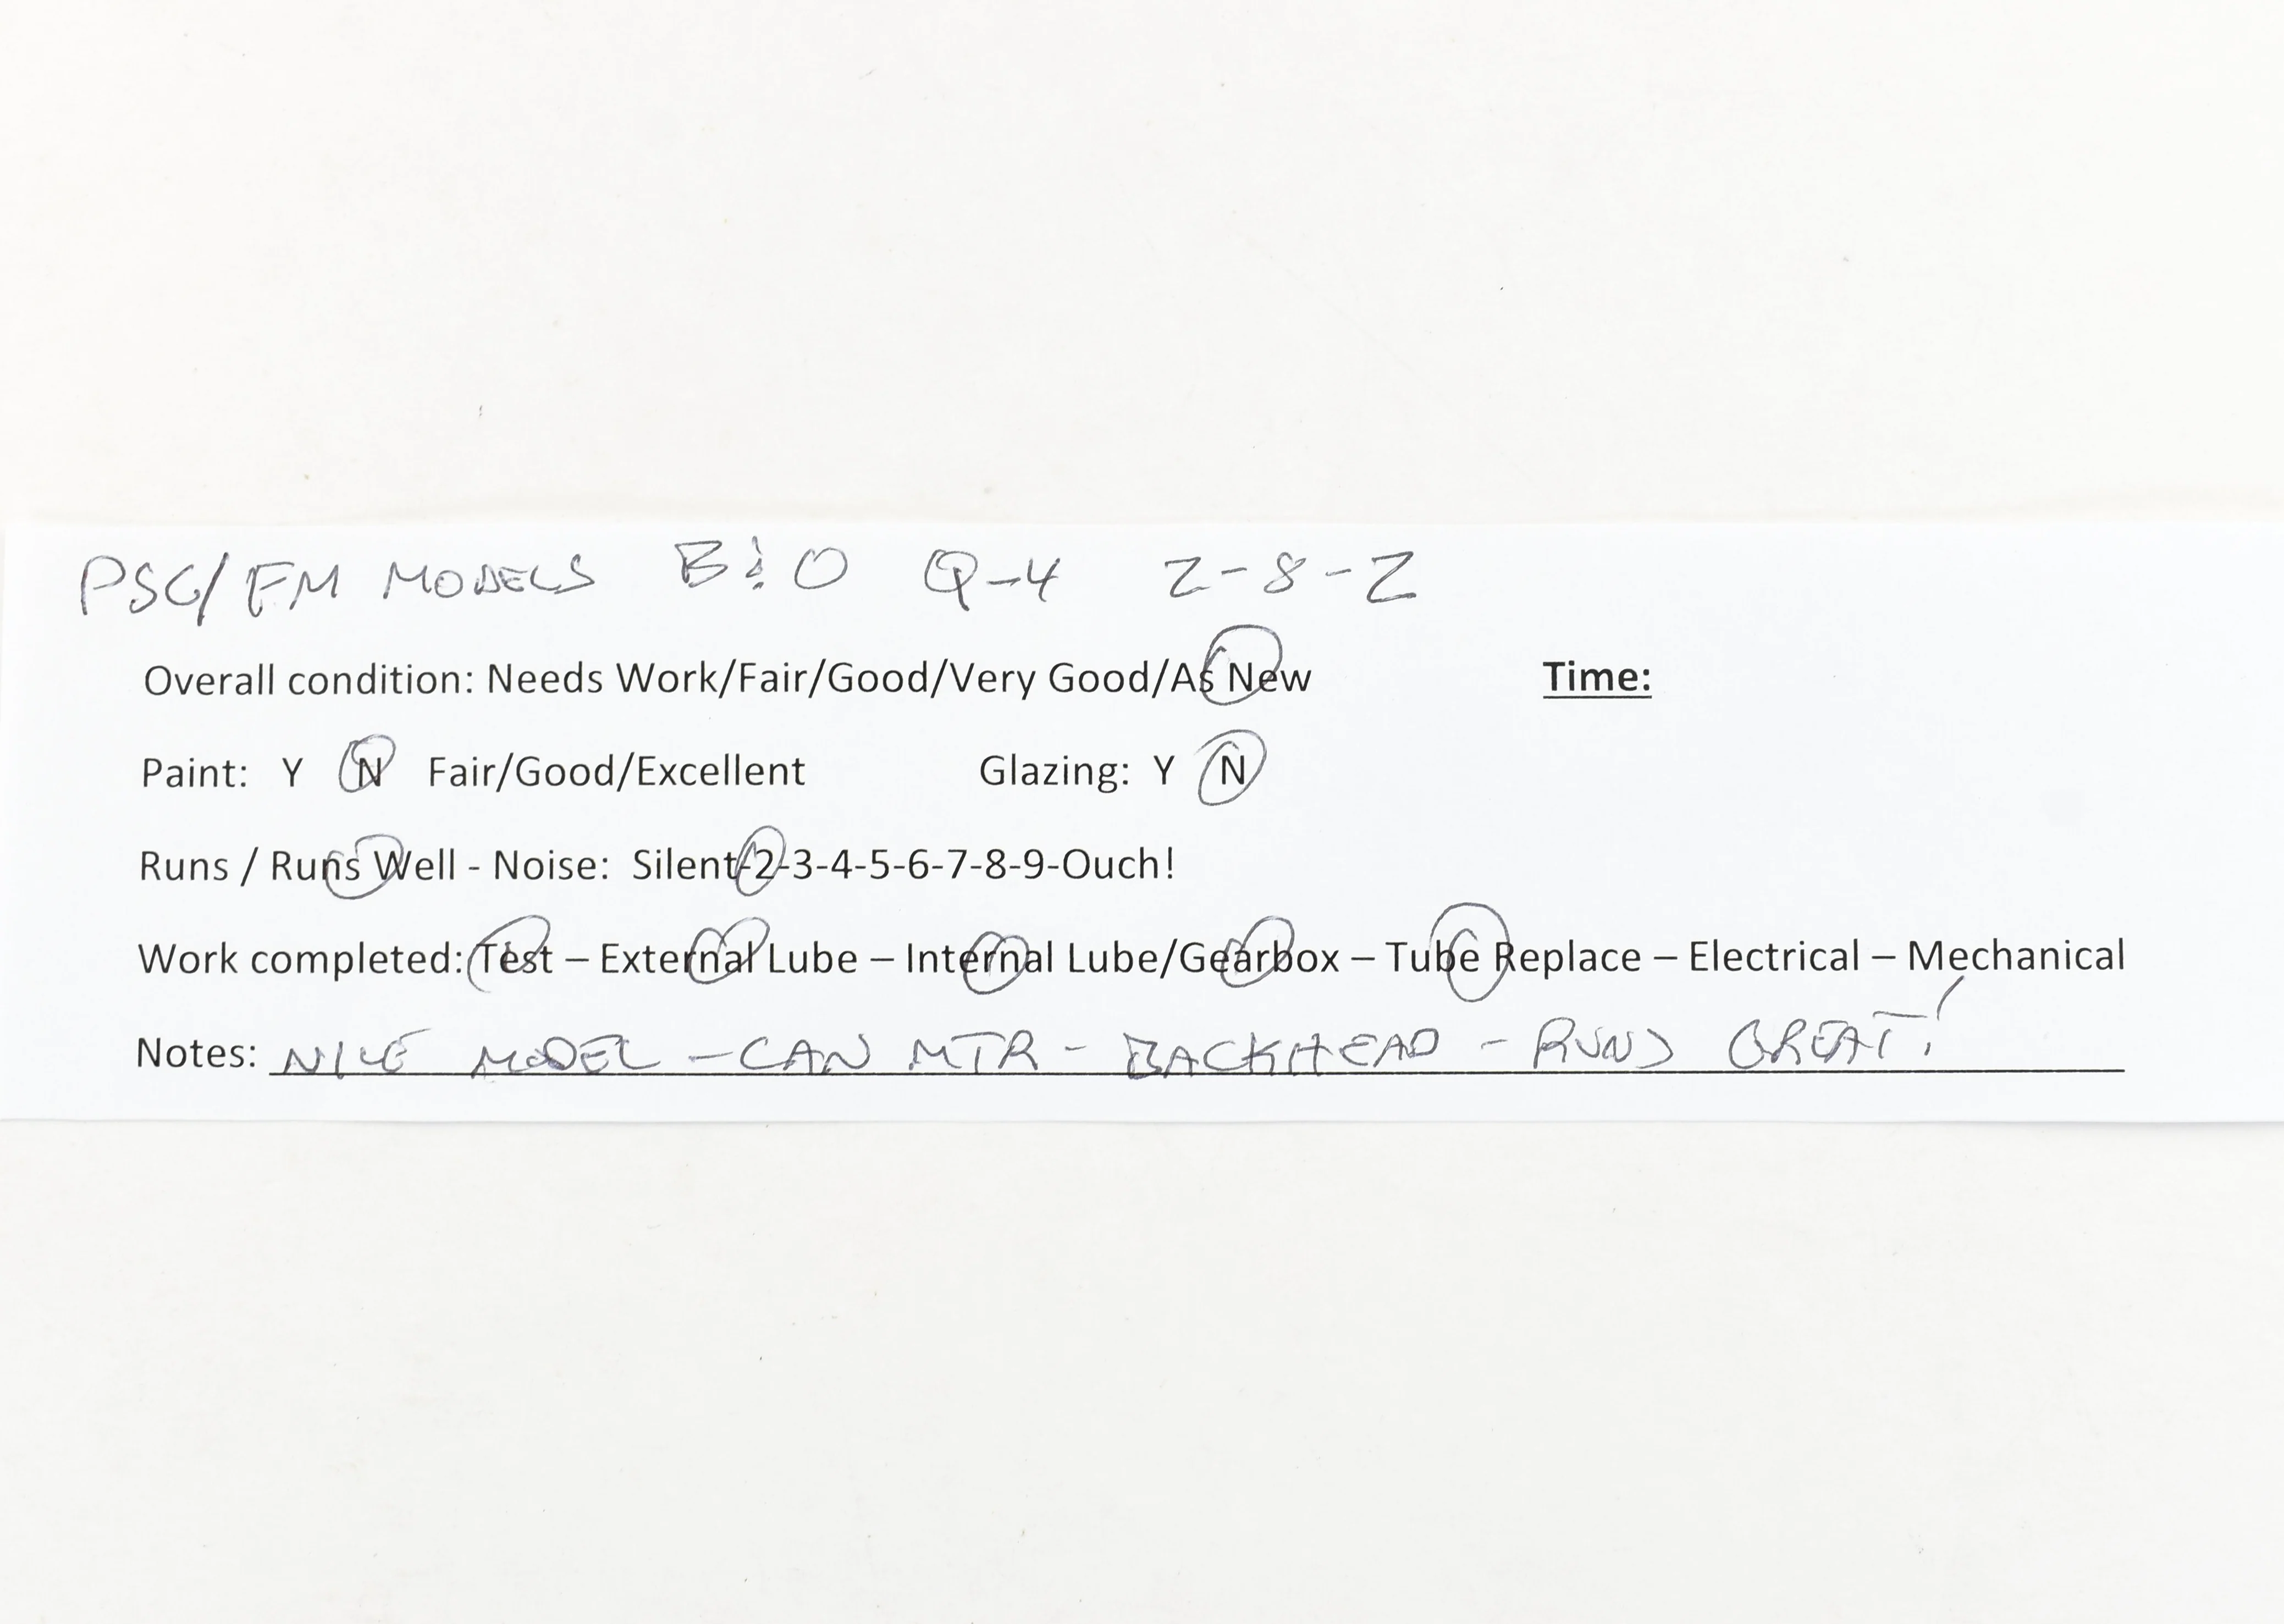 PSC/FM MODELS B&O Q-4 2-8-2
Overall condition: Needs Work/Fair/Good/Very Good/As New Time:
Paint: Y N Fair/Good/Excellent Glazing: Y N
Runs / Runs Well - Noise: Silent-2-3-4-5-6-7-8-9-Ouch!
Work completed: Test – External Lube – Internal Lube/Gearbox – Tube Replace – Electrical – Mechanical
Notes: NICE MODEL - CAN MTR - BACKHEAD - RUNS GREAT!